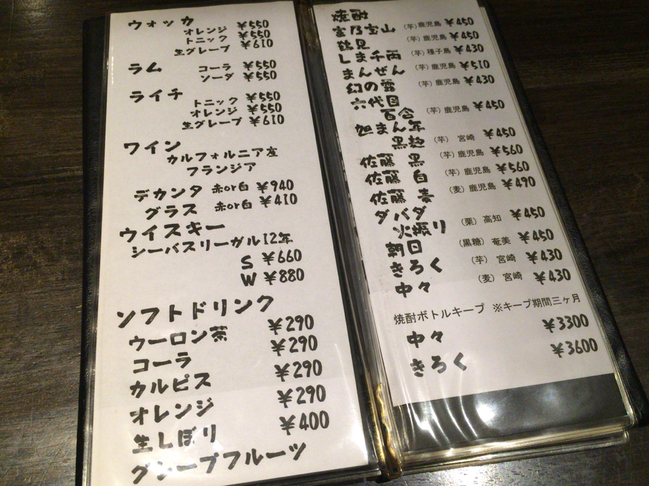 ウォッカ
オレンジ ¥550
トニック ¥550
生グレープ ¥610
ラム コーラ ¥550
ソーダ ¥550
ライチ
トニック ¥550
オレンジ ¥550
生グレープ ¥610
ワイン
カルフォルニア産
フランジア
デカンタ 赤or白 ¥940
グラス 赤or白 ¥410
ウイスキー
シーバスリーガル12年
S ¥660
W ¥880
ソフトドリンク
ウーロン茶 ¥290
コーラ ¥290
カルピス ¥290
オレンジ ¥290
生しぼり ¥400
グレープフルーツ
焼酎
富乃宝山 (芋) 鹿児島 ¥450
鶴見 (芋) 鹿児島 ¥450
しま千両 (芋) 種子島 ¥430
まんぜん (芋) 鹿児島 ¥510
幻の露 (芋) 鹿児島 ¥430
六代目
百合 (芋) 鹿児島 ¥450
まん年
黒麹 (芋) 宮崎 ¥450
佐藤 黒 (芋) 鹿児島 ¥560
佐藤 白 (芋) 鹿児島 ¥560
佐藤 麦 (麦) 鹿児島 ¥490
ダバダ
火振り (栗) 高知 ¥450
朝日 (黒糖) 奄美 ¥450
きろく (芋) 宮崎 ¥430
中々 (麦) 宮崎 ¥430
焼酎ボトルキープ ※キープ期間三ヶ月
中々 ¥3300
きろく ¥3600